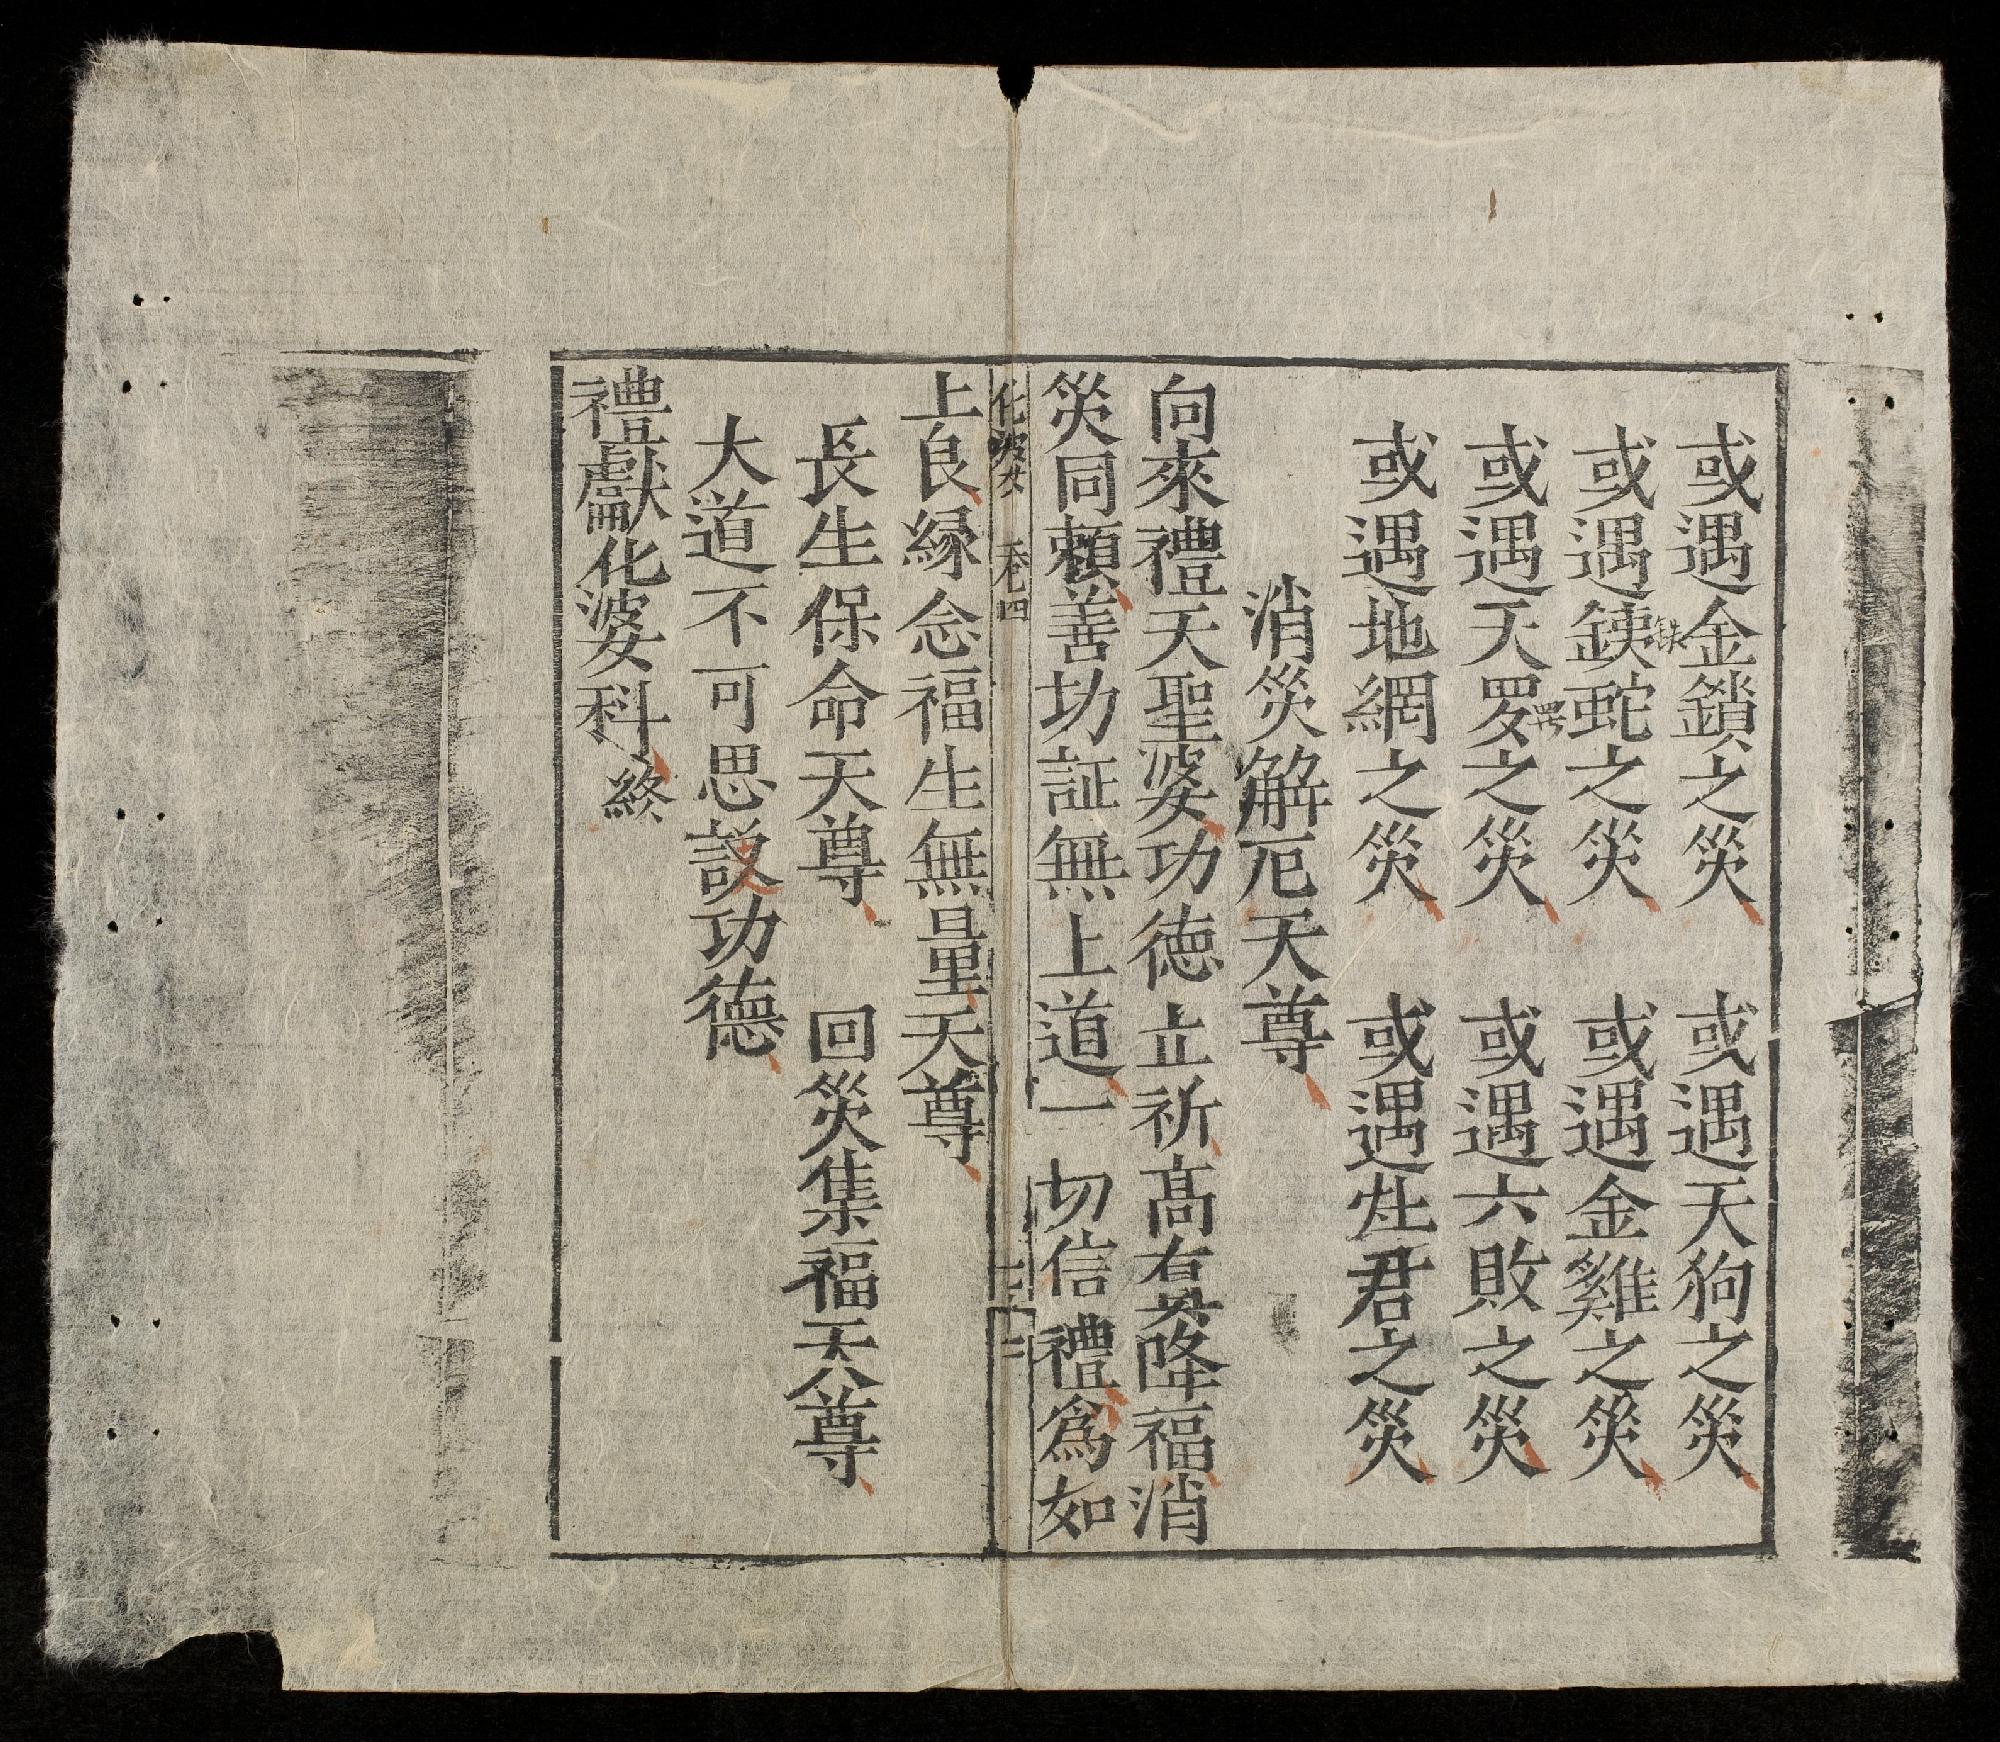 或遇金鎖之災　或遇天狗之災
或遇鉄蛇之災　或遇金雞之災
鉄
或遇天罗之災　或遇六敗之災
罗
或遇地網之災　或遇灶君之災
消災解厄天尊
向來禮天聖婆功德立祈高真降福消
災同賴善功証無上道一切信禮為如
化婆 卷四
上良緣念福生無量天尊
長生保命天尊　回災集福天尊
大道不可思議功德
禮獻化婆科終